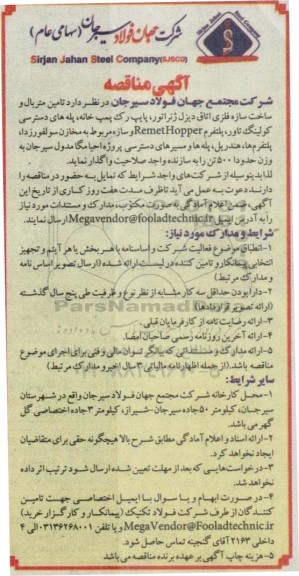 شرکت جهان فولاد سیرجان (سهامی عام)
Sirjan Jahan Steel Company(SJSCO)
آگهی مناقصه
شرکت مجتمع جهان فولاد سیرجان در نظر دارد تامین متریال و
ساخت سازه فلزی اتاق دیزل ژنراتور، پایپ رک پمپ خانه، پله های دسترسی
کولینگ تاور، پلتفرم Remet Hopper و سازه مربوط به مخازن سولفورزدا،
پلتفرم‌ها، هندریل، پله ها و مسیرهای دسترسی پروژه احیا مگامدول سیرجان به
وزن حدودا ۵۰۰ تن را به سازنده واجد صلاحیت واگذار نماید.
لذا بدینوسیله از شرکت‌های واجد شرایط که تمایل به حضور در مناقصه را
دارند دعوت به عمل می آید تا ظرف مدت هفت روز کاری از تاریخ این
آگهی، ضمن اعلام آمادگی به صورت مکتوب، مدارک و مستندات مورد نیاز
را به آدرس ایمیل Megavendor@fooladtechnic.ir ارسال نمایند.
شرایط و مدارک مورد نیاز:
۱-انطباق موضوع فعالیت شرکت و اساسنامه با هر بخش یا هر آیتم و تجهیز
انتخابی پیمانکار و تامین کننده در لیست ارائه شده (ارسال تصویر اساس نامه
و مدارک مرتبط)
۲-دارا بودن حداقل سه کار مشابه از نظر نوع و ظرفیت طی پنج سال گذشته
(ارائه تصویر قراردادها)
۳-ارائه رضایت نامه از کارفرمایان قبلی.
۴-ارائه آخرین روزنامه رسمی صاحبان امضا.
۵-ارائه مدارک و مستنداتی که بیانگر توان مالی و فنی برای اجرای موضوع
مناقصه باشد. (از جمله اظهارنامه مالیاتی ۳ سال اخیر و مدارک مرتبط)
سایر شرایط:
۱-محل کارخانه شرکت مجتمع جهان فولاد سیرجان واقع در شهرستان
سیرجان، کیلومتر ۵۰ جاده سیرجان-شیراز، کیلومتر ۳ جاده اختصاصی گل
گهر می باشد.
۲-ارائه اسناد و اعلام آمادگی مطابق شرح بالا هیچگونه حقی برای متقاضیان
ایجاد نخواهد کرد.
۳-درخواست‌هایی که بعد از مهلت تعیین شده ارسال شود ترتیب اثر داده
نخواهد شد.
۴-در صورت ابهام و یا سوال با ایمیل اختصاصی جهت تامین
کنندگان از طرف شرکت فولاد تکنیک (پیمانکار و کارگزار خرید)
MegaVendor@Fooladtechnic.ir و یا تلفن ۰۳۱۳۶۲۶۸۰۰۱ الی ۴
داخلی ۲۱۶۳ آقای گنجینه تماس حاصل شود.
۵-هزینه چاپ آگهی بر عهده برنده مناقصه می باشد